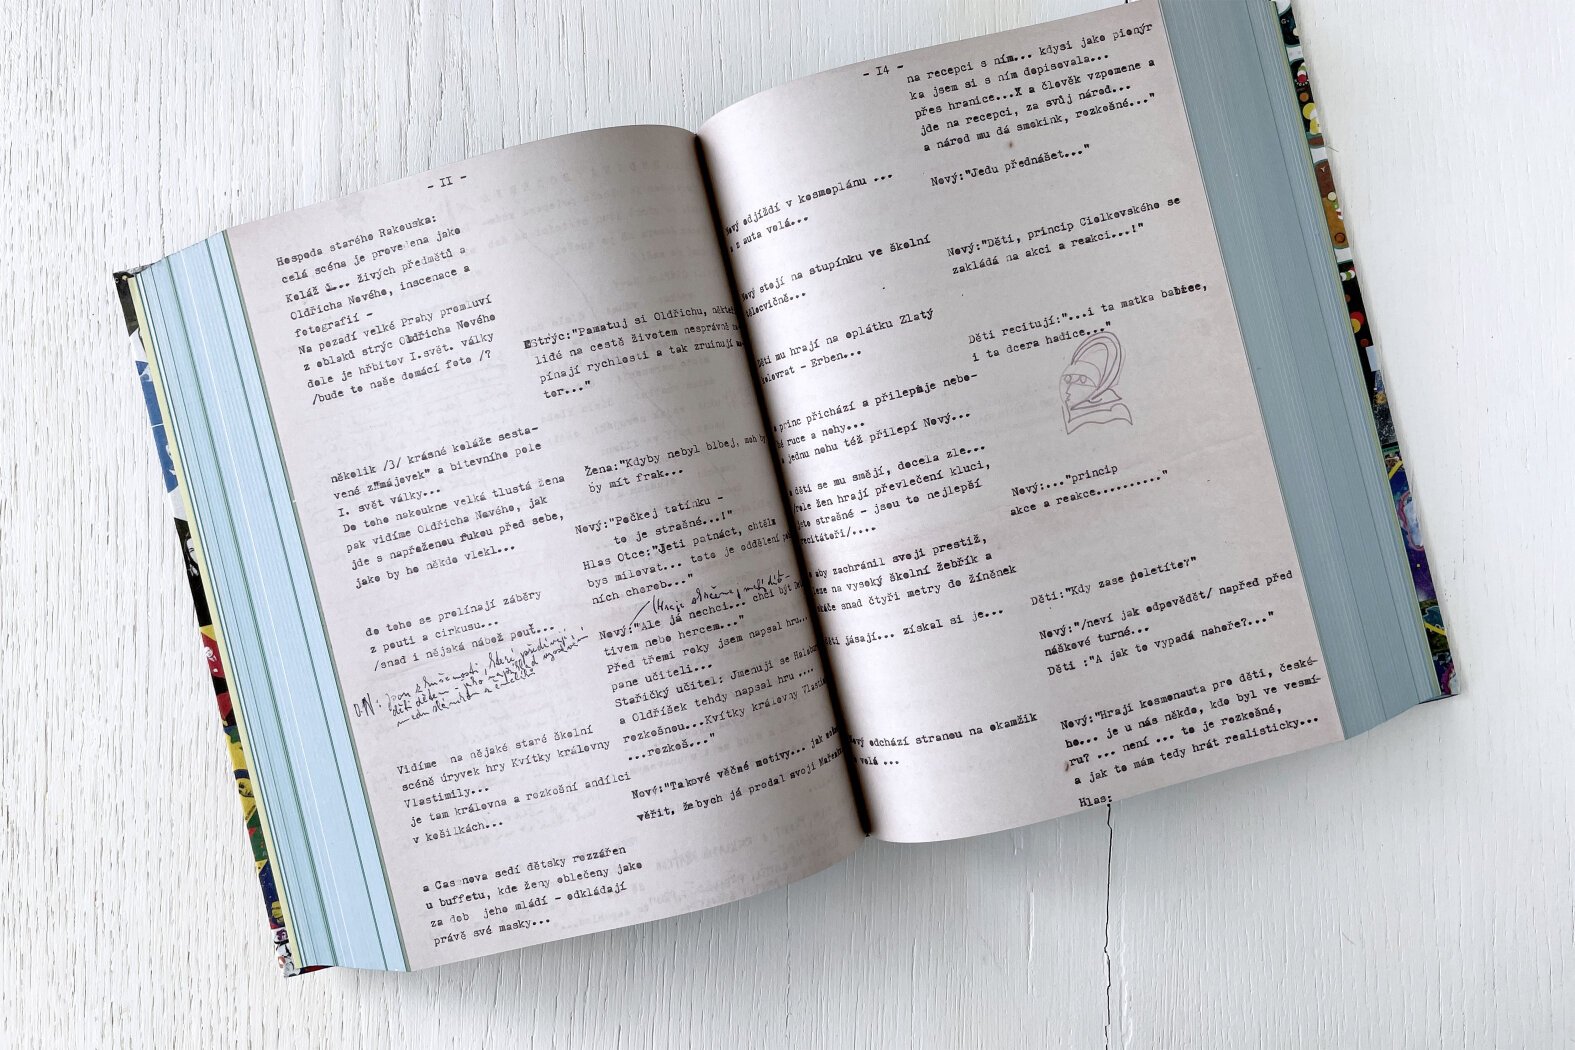 - II -
Hospoda starého Rakouska:
celá scéna je provedena jako
Koláž z... živých předmětů a
Oldřicha Nového, inscenace a
fotografií -
Na pozadí velké Prahy promluví
z oblaků strýc Oldřicha Nového
dole je hřbitov I.svět. války
/bude to naše domácí foto /?
několik /3/ krásné koláže sesta-
vené z"májovek" a bitevního pole
I. svět války...
Do toho nakoukne velká tlustá žena
pak vidíme Oldřicha Nového, jak
jde s napřaženou rukou před sebe,
jako by ho někdo vlekl...
do toho se prolínají záběry
z pouti a cirkusu...
/snad i nějaká nábož pouť...
O.N:
Vidíme na nějaké staré školní
scéně úryvek hry Kvítky královny
Vlastimily...
je tam královna a rozkošní andílci
v košilkách...
a Cas nova sedí dětsky rozzářen
u buffetu, kde ženy oblečeny jako
za dob jeho mládí - odkládají
právě své masky...
Strýc:"Pamatuj si Oldřichu,
lidé na cestě životem nesprávně
pínají rychlosti a tak zruinují
tor..."
Žena:"Kdyby nebyl blbej, moh
by mít frak...
Nový:"Počkej tatínku -
to je strašné...!"
Hlas Otce:"Jeti patnáct, chtěls
bys milovat... toto je oddělení
ních chorob..."
Nový:"Ale já nechci... chci být
tivem nebo hercem..."
Před třemi roky jsem napsal hru...
pane učiteli...
Stařičký učitel: Jmenuji se
a Oldříšek tehdy napsal hru ....
rozkošnou...Kvítky královny
...rozkoš..."
Nový:"Takové věčné motivy... jak
věřit, žebych já prodal svoji
- I4 -
na recepci s ním... kdysi jako pionýr
ka jsem si s ním dopisovala...
přes hranice...X a člověk vzpomene a
jde na recepci, za svůj národ...
a národ mu dá smokink, rozkošné..."
Nový:"Jedu přednášet..."
Nový odjíždí v kosmoplánu ...
z auta volá...
Nový:"Děti, princip Ciolkovského se
zakládá na akci a reakci...!"
Nový stojí na stupínku ve školní
tělocvičně...
Děti recitují:"...i ta matka babice,
i ta dcera hadice..."
Děti mu hrají na oplátku Zlatý
kolovrat - Erben...
princ přichází a přilepuje nebo-
ruce a nohy...
jednu nohu též přilepí Nový...
děti se mu smějí, docela zle...
role žen hrají převlečení kluci,
strašné - jsou to nejlepší
recitátoři/....
Nový:..."princip
akce a reakce.........."
aby zachránil svoji prestiž,
leze na vysoký školní žebřík a
skáče snad čtyři metry do žíněnek
Děti:"Kdy zase poletíte?"
Děti jásají... získal si je...
Nový:"/neví jak odpovědět/ napřed před
náškové turné...
Děti :"A jak to vypadá nahoře?..."
Nový odchází stranou na okamžik
volá ...
Nový:"Hraji kosmonauta pro děti, české-
ho... je u nás někdo, kdo byl ve vesmí-
ru? ... není ... to je rozkošné,
a jak to mám tedy hrát realisticky...
Hlas: